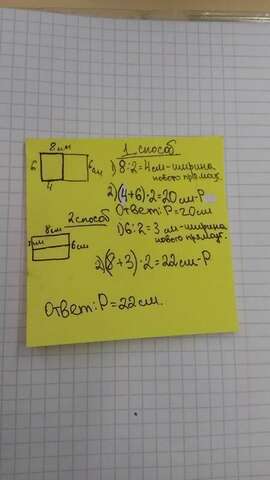 1 способ
8 см
6
6 см
4
1) 8:2=4 см-ширина
нового прямоуг.
2)(4+6)·2=20 см-P
Ответ:P=20 см
2 способ
8 см
3 см
6 см
1) 6:2=3 см-ширина
нового прямоуг.
2)(8+3)·2=22 см-P
Ответ:P=22 см.